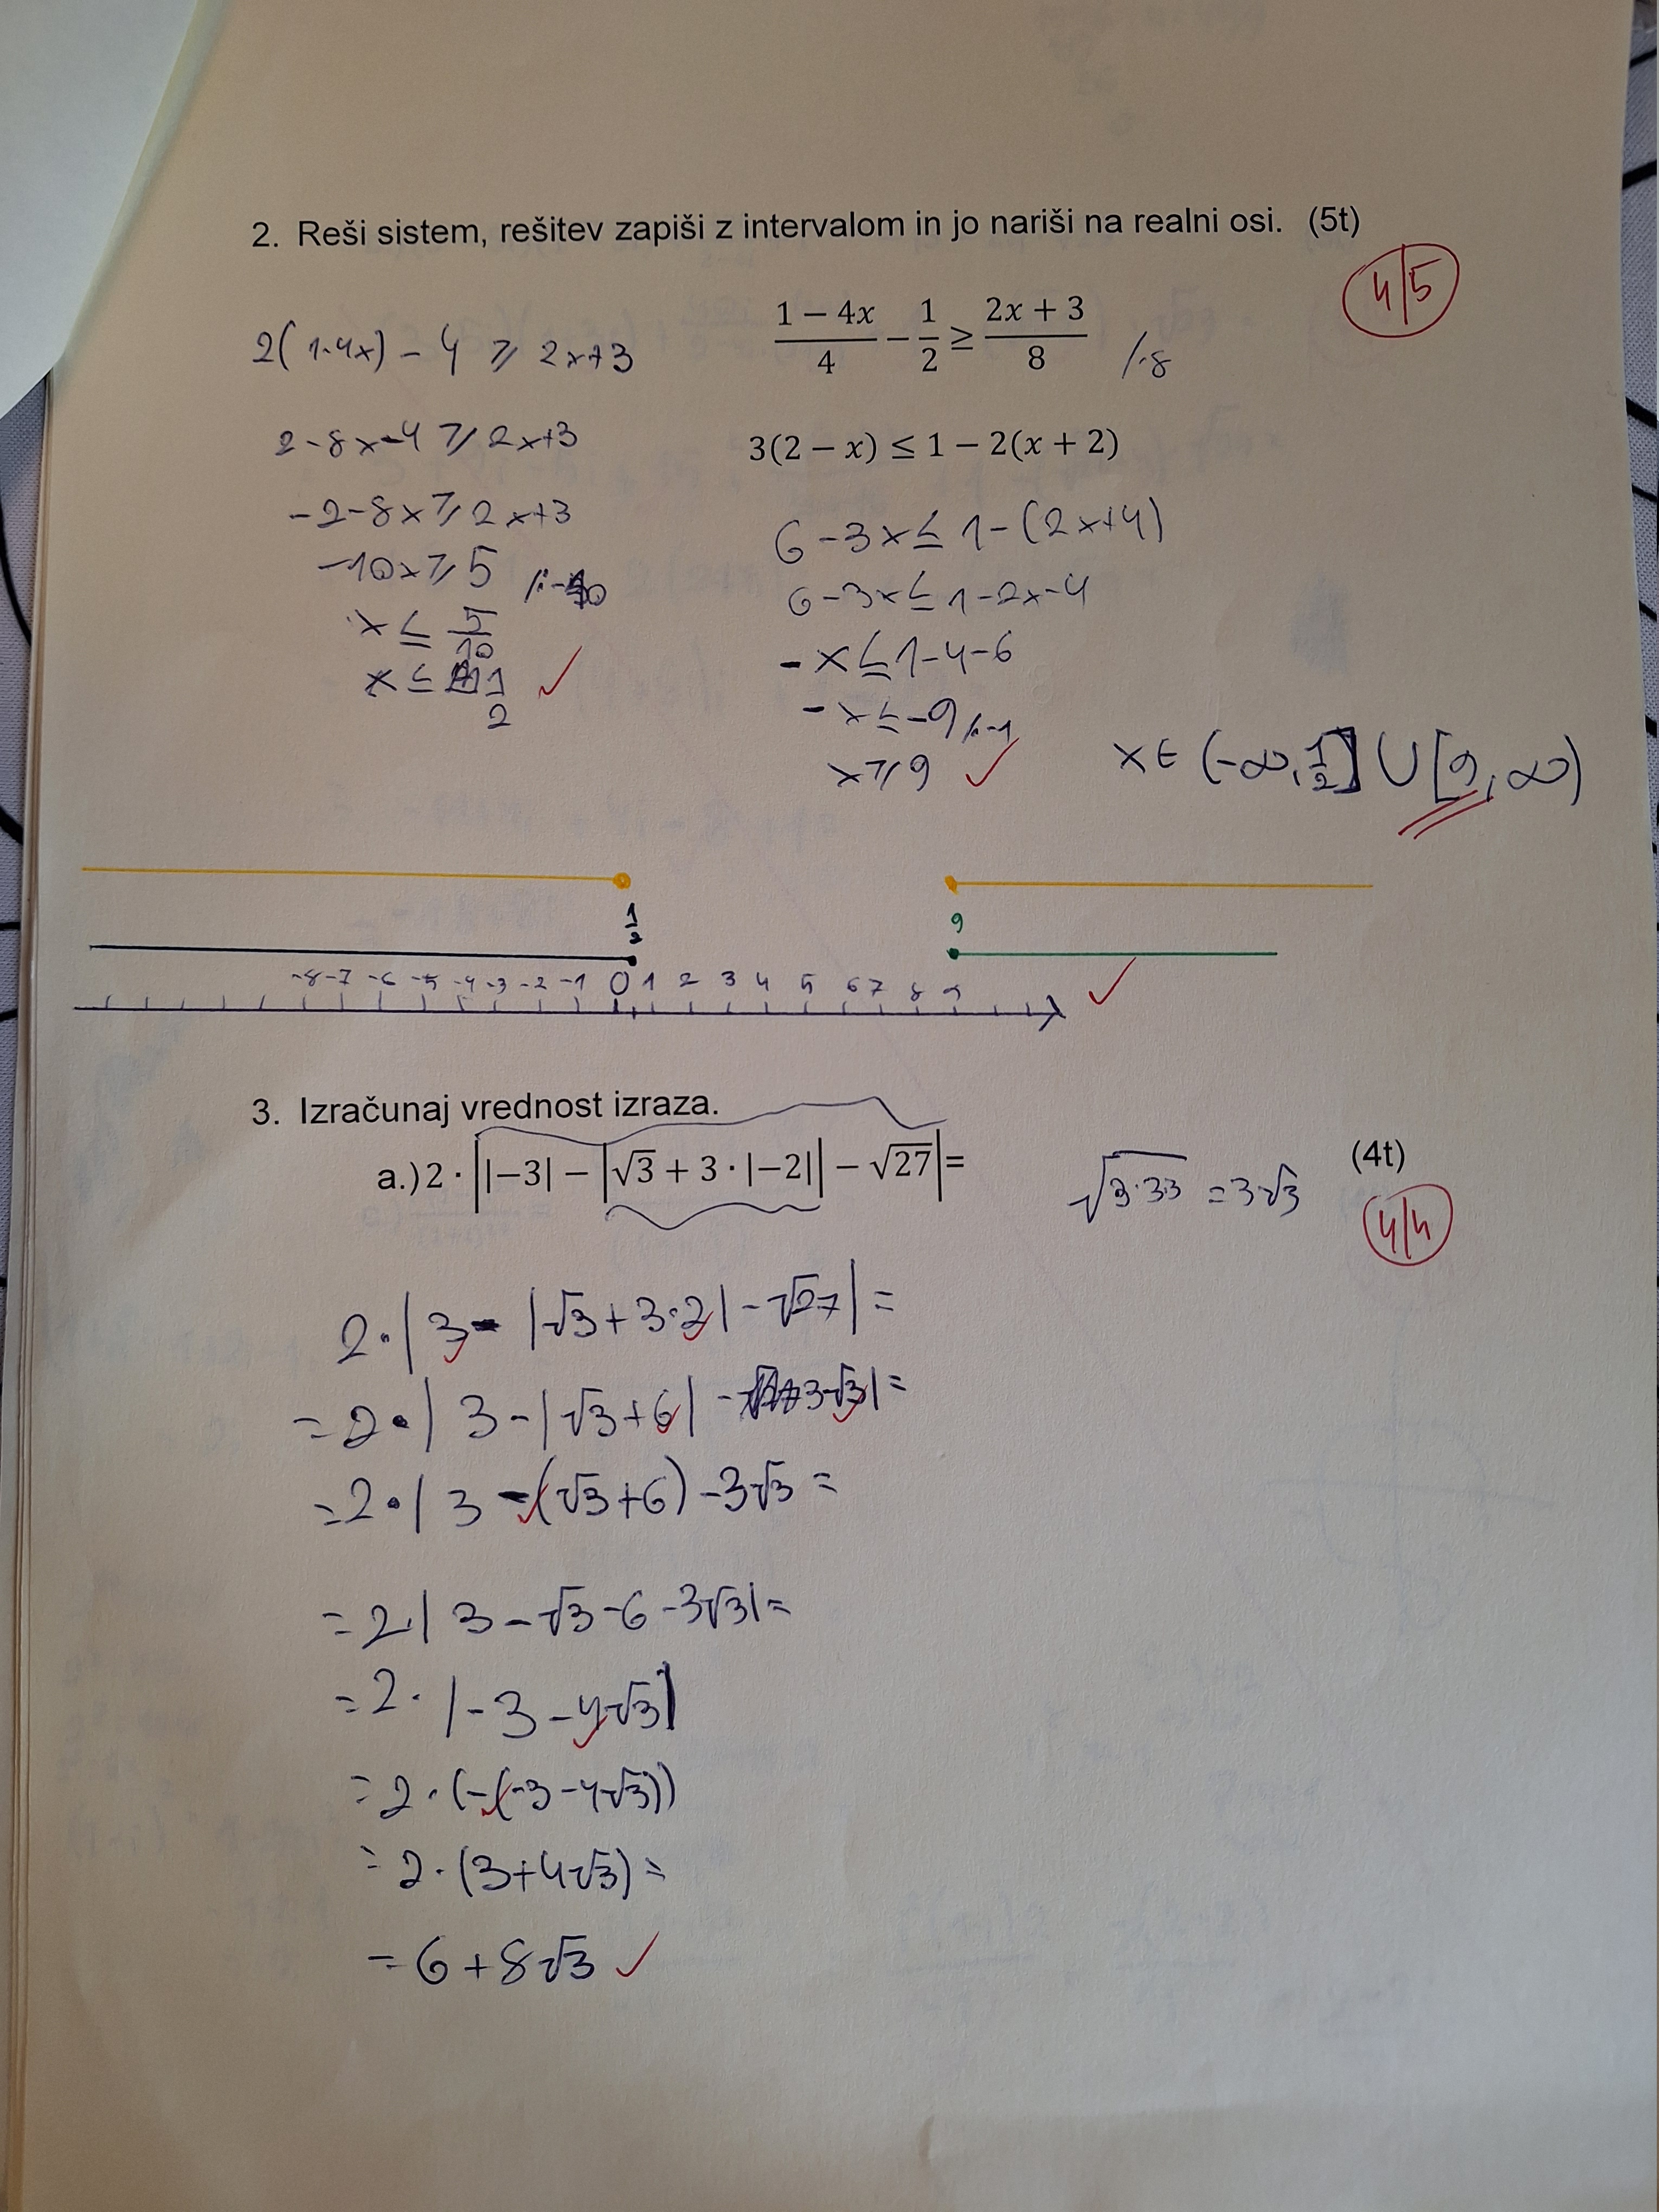 2. Reši sistem, rešitev zapiši z intervalom in jo nariši na realni osi. (5t)
4/5
(1 − 4x)/4 − 1/2 ≥ (2x + 3)/8 /·8
2(1-4x) - 4 ≥ 2x+3
2-8x-4 ≥ 2x+3
-2-8x ≥ 2x+3
-10x ≥ 5 /:-10
x ≤ 5/10
x ≤ 1/2 ✓
3(2 − x) ≤ 1 − 2(x + 2)
6-3x ≤ 1-(2x+4)
6-3x ≤ 1-2x-4
-x ≤ 1-4-6
-x ≤ -9 /:-1
x ≥ 9 ✓
x ∈ (-∞, 1/2] ∪ [9, ∞)
1/2 9
-8 -7 -6 -5 -4 -3 -2 -1 0 1 2 3 4 5 6 7 8 9 ✓
3. Izračunaj vrednost izraza.
a.) 2 · ||−3| − |√3 + 3 · |−2|| − √27| =
√3·33 = 3√3
(4t)
4/4
2·| 3 - |√3+3·2| - √27| =
= 2·| 3 - |√3+6| - 3√3| =
= 2·| 3 - (√3+6) - 3√3 =
= 2·| 3 - √3 - 6 - 3√3| =
= 2· |-3 - 4√3|
= 2·(-(-3-4√3))
= 2·(3+4√3) =
= 6+8√3 ✓